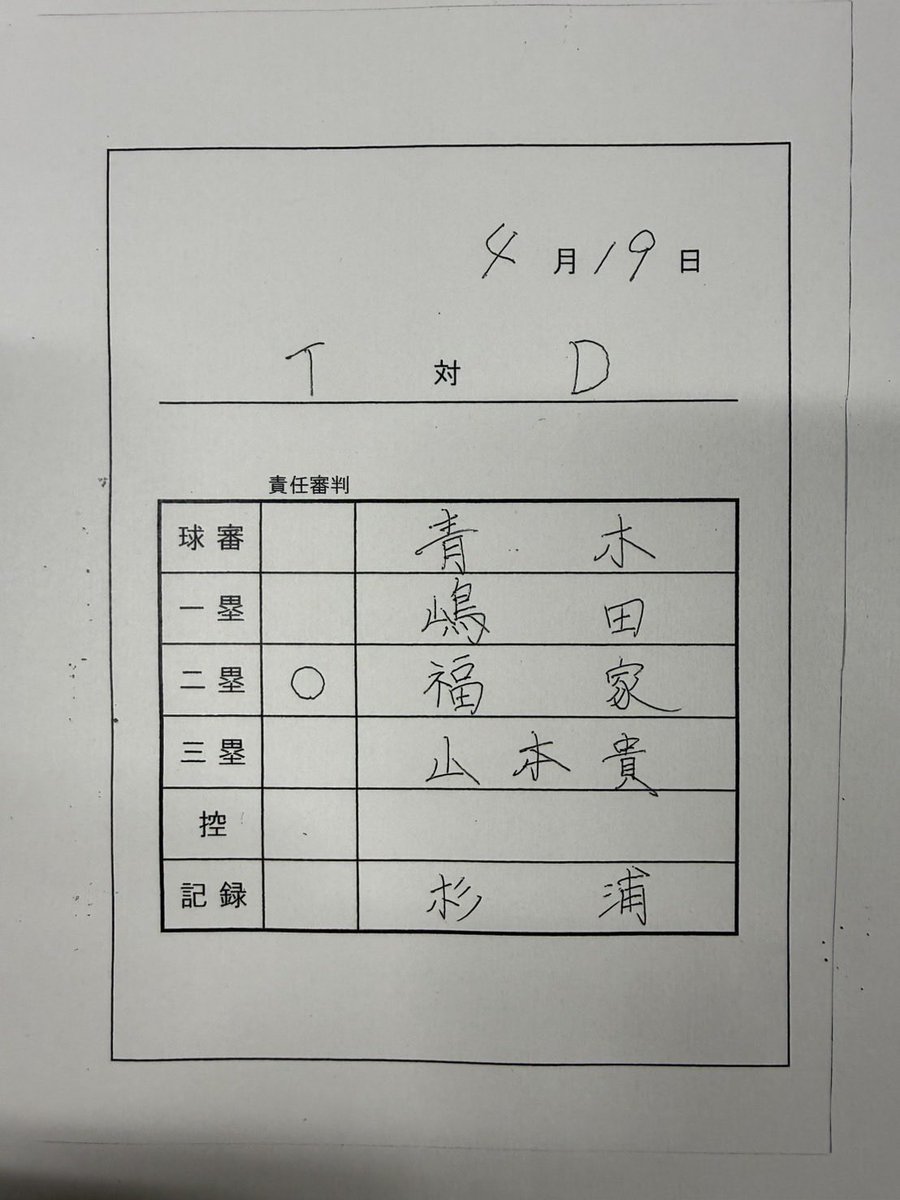 4月19日
T 対 D
責任審判
球審 青木
一塁 嶋田
二塁 ○ 福家
三塁 山本貴
控
記録 杉浦